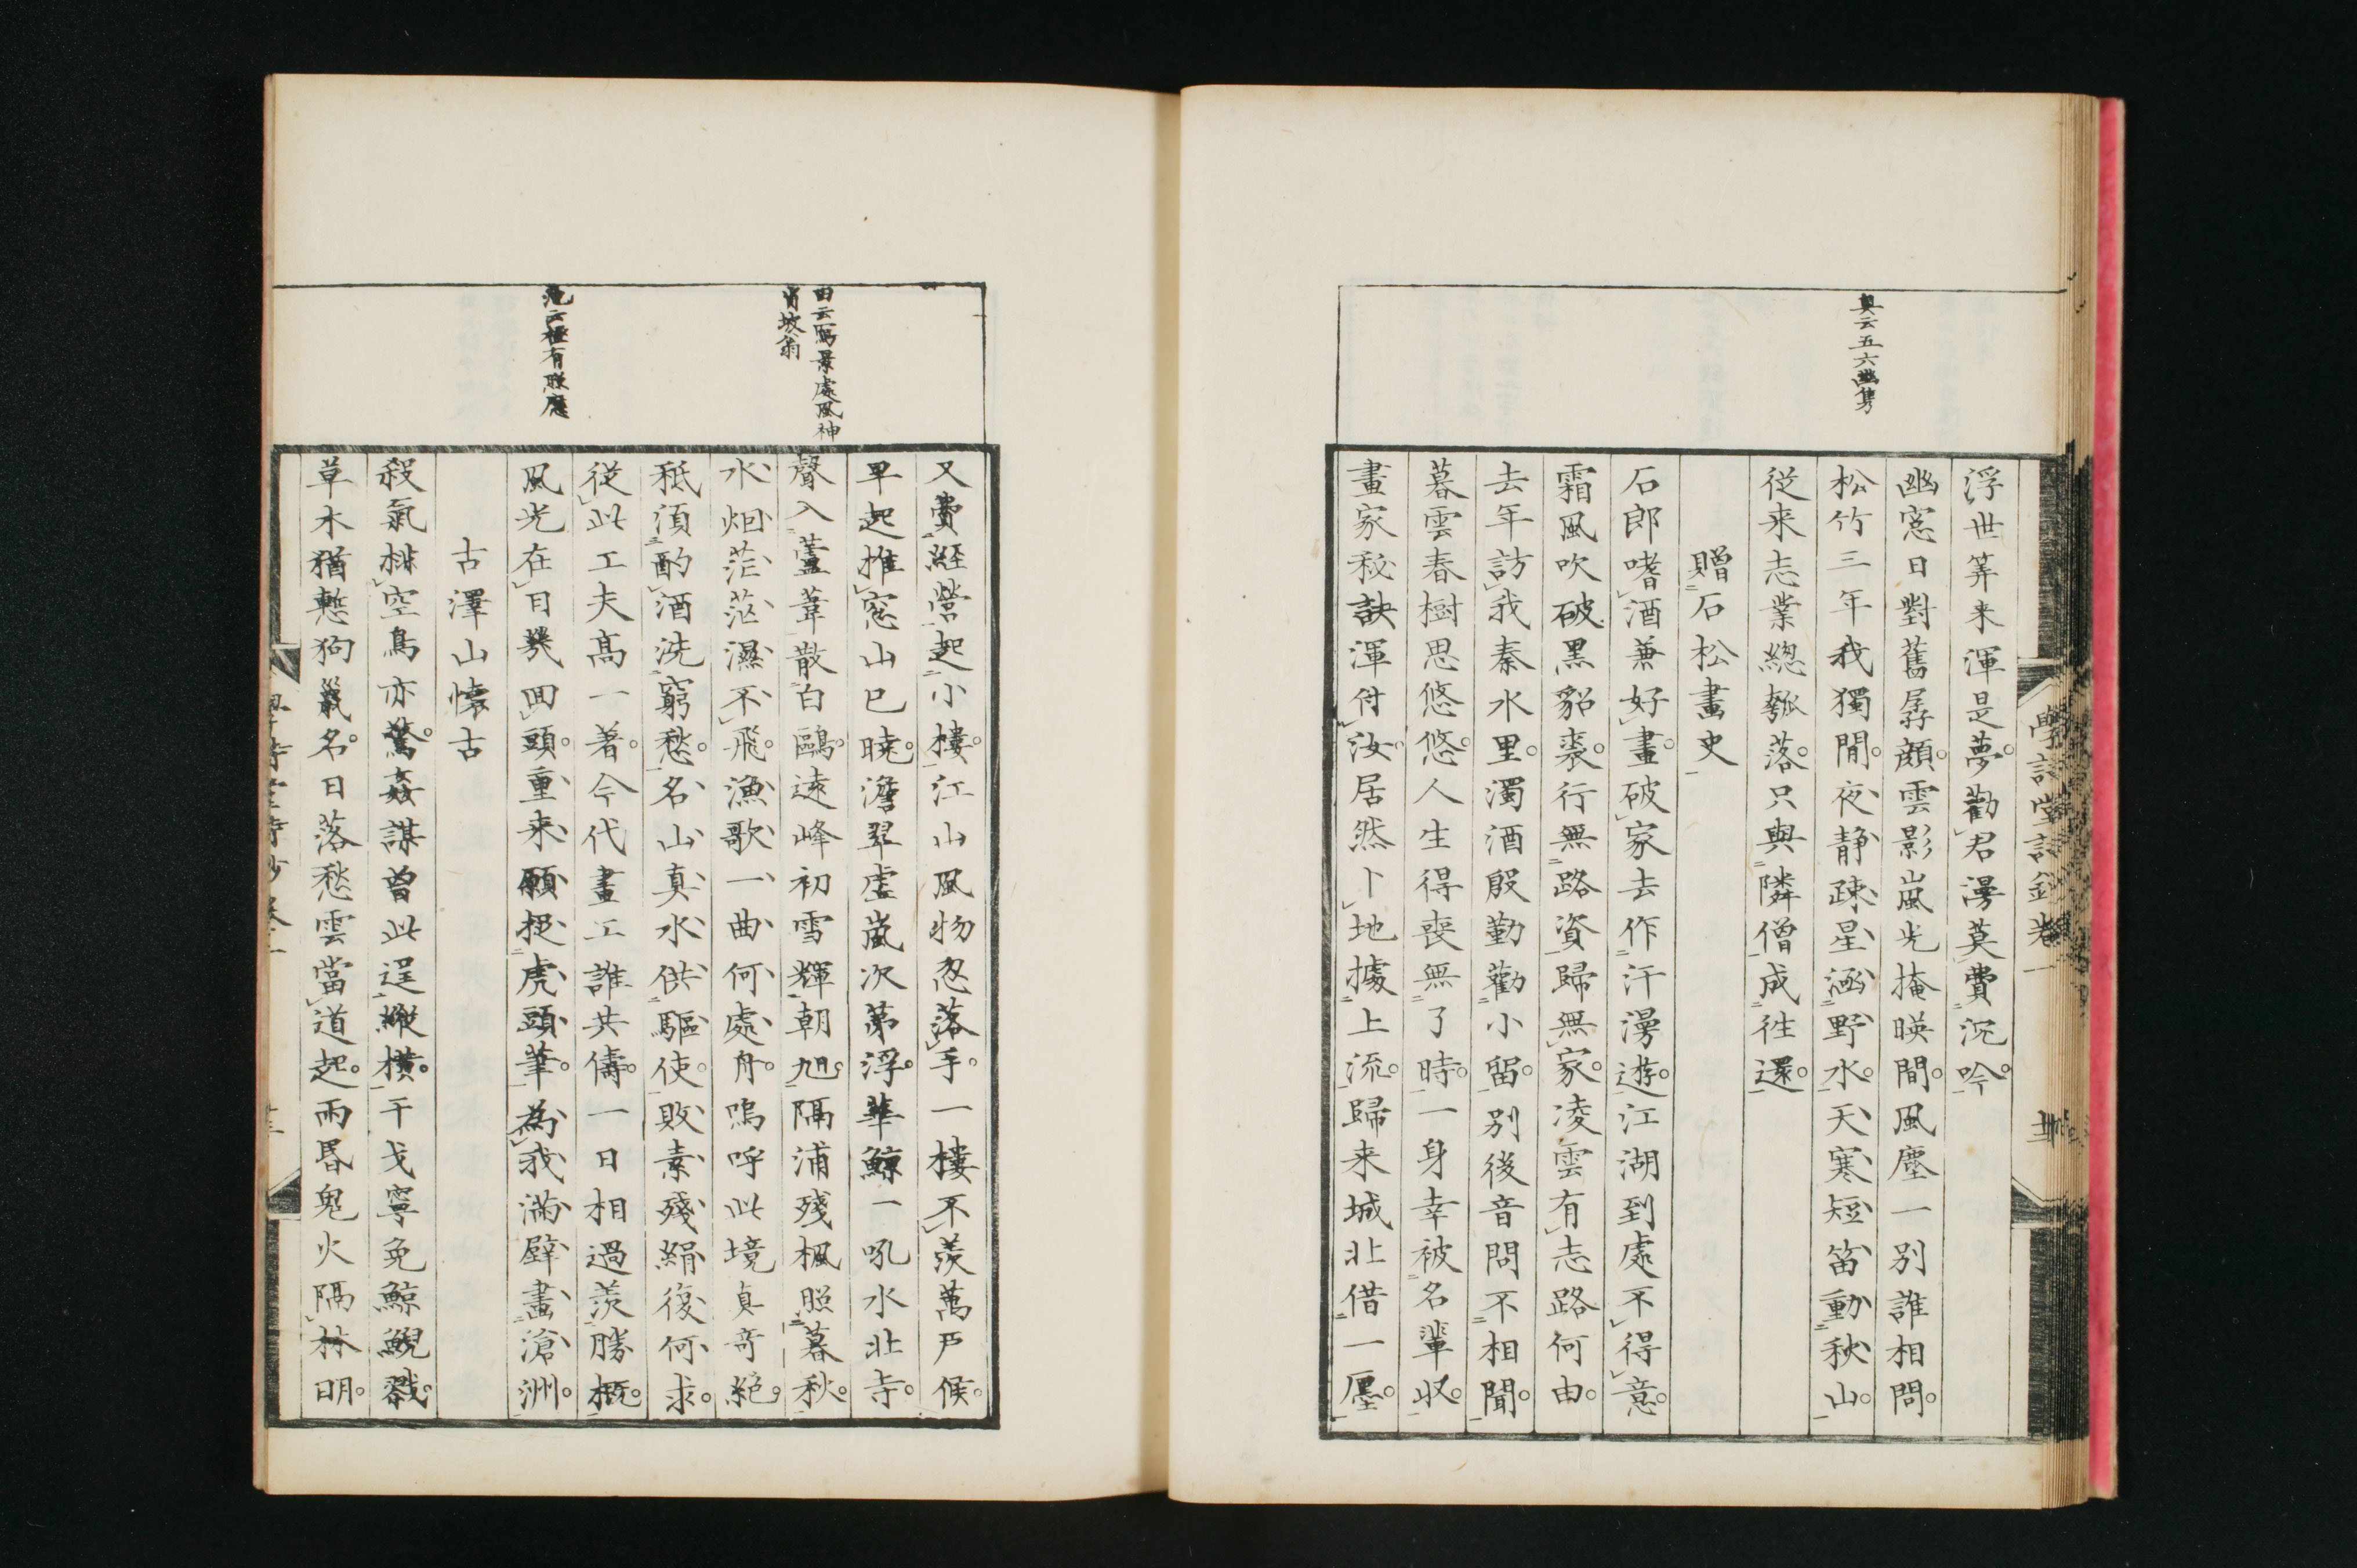 浮世筭来渾是夢勸君漫莫費沉吟
幽窓日對舊孱顔雲影嵐光掩暎間風塵一別誰相問
松竹三年我獨閒夜静疎星涵野水天寒短笛動秋山
従来志業總瓠落只與隣僧成徃還
贈石松畫史
石郎嗜酒兼好畫破家去作汗漫遊江湖到處不得意
霜風吹破黒貂裘行無路資歸無家凌雲有志路何由
去年訪我秦水里濁酒殷勤勸小留別後音問不相聞
暮雲春樹思悠悠人生得喪無了時一身幸被名輩収
畫家秘訣渾付汝居然卜地據上流歸来城北借一廛
奥云五六幽雋
又費経営起小樓江山風物忽落手一樓不羨萬戸侯
早起推窓山已曉澹翠虚嵐次第浮華鯨一吼水北寺
聲入蘆葦散白鷗遠峰初雪輝朝旭隔浦殘楓照暮秋
水烟茫茫濕不飛漁歌一曲何處舟嗚呼此境真奇絶
秪湏酌酒洗窮愁名山真水供驅使敗素殘絹復何求
従此工夫髙一著今代畫工誰共儔一日相過羨勝概
風光在目幾回頭重来願挹虎頭筆為我滿壁畫滄洲
古澤山懐古
殺氣排空鳥亦驚姦謀曽此逞縦横干戈寧免鯨鯢戮
草木猶慙狗鼠名日落愁雲當道起雨昏鬼火隔林明
田云寫景處風神
肖坡翁
範云極有照應